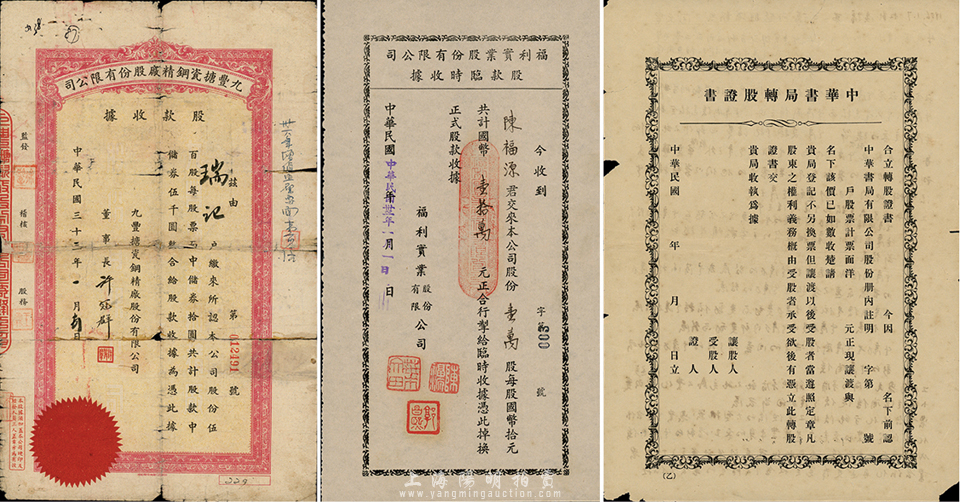 九豐搪瓷鋼精廠股份有限公司
股款收據
第012191號
茲由
瑞記
戶繳來所認本公司股份伍
百股每股股票中儲券拾圓共計股款中
儲券伍千圓整合給股款收據為憑此據
九豐搪瓷鋼精廠股份有限公司
董事長
中華民國三十三年一月 日
監發
稽核
股務
229
福利實業股份有限公司
股款臨時收據
字第003號
今收到
陳福源君交來本公司股份壹萬股每股國幣拾元
共計國幣壹拾萬元正合行掣給臨時收據憑此掉換
正式股款收據
福利實業股份有限公司
中華民國卅年一月一日
中華書局轉股證書
合立轉股證書 今因 名下前認
中華書局有限公司股份册内註明 字第 號
戶股票計票面洋 元正現讓渡與
名下該價已如數收楚請
貴局登記不另換票但讓渡以後受股者當遵照定章凡
股東之權利義務概由受股者承受欲後有憑立此轉股
證書交
貴局收執爲據
讓股人
受股人
證人
中華民國 年 月 日立
(乙)
上海陽明拍賣
www.yangmingauction.com